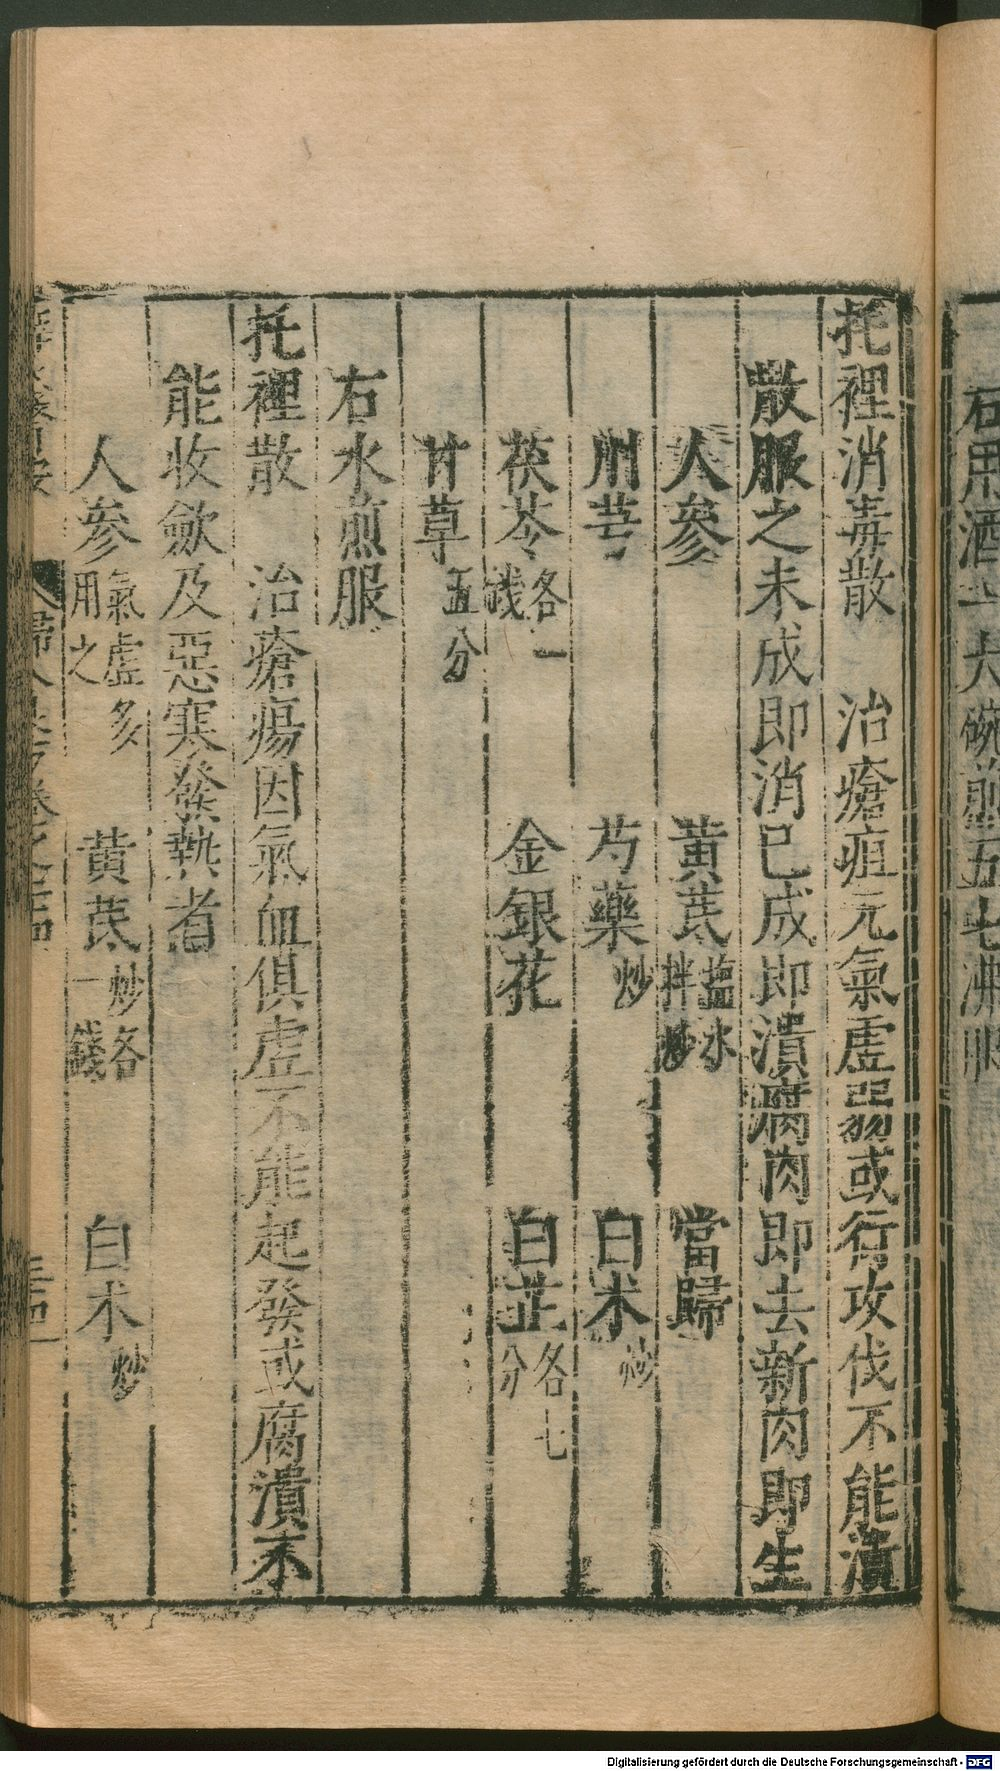 右用酒一大碗煎五七沸服
托裡消毒散　治瘡疽元氣虛弱或行攻伐不能潰
散服之未成即消已成即潰腐肉即去新肉即生
人參　黃芪塩水拌炒　當歸
川芎　芍藥炒　白朮炒
茯苓各一錢　金銀花　白芷各七分
甘草五分
右水煎服
托裡散　治瘡瘍因氣血俱虛不能起發或腐潰不
能收歛及惡寒發熱者
人參氣虛多用之　黃芪炒各一錢　白朮炒
婦人良方卷之二十四
三四
Digitalisierung gefördert durch die Deutsche Forschungsgemeinschaft - DFG